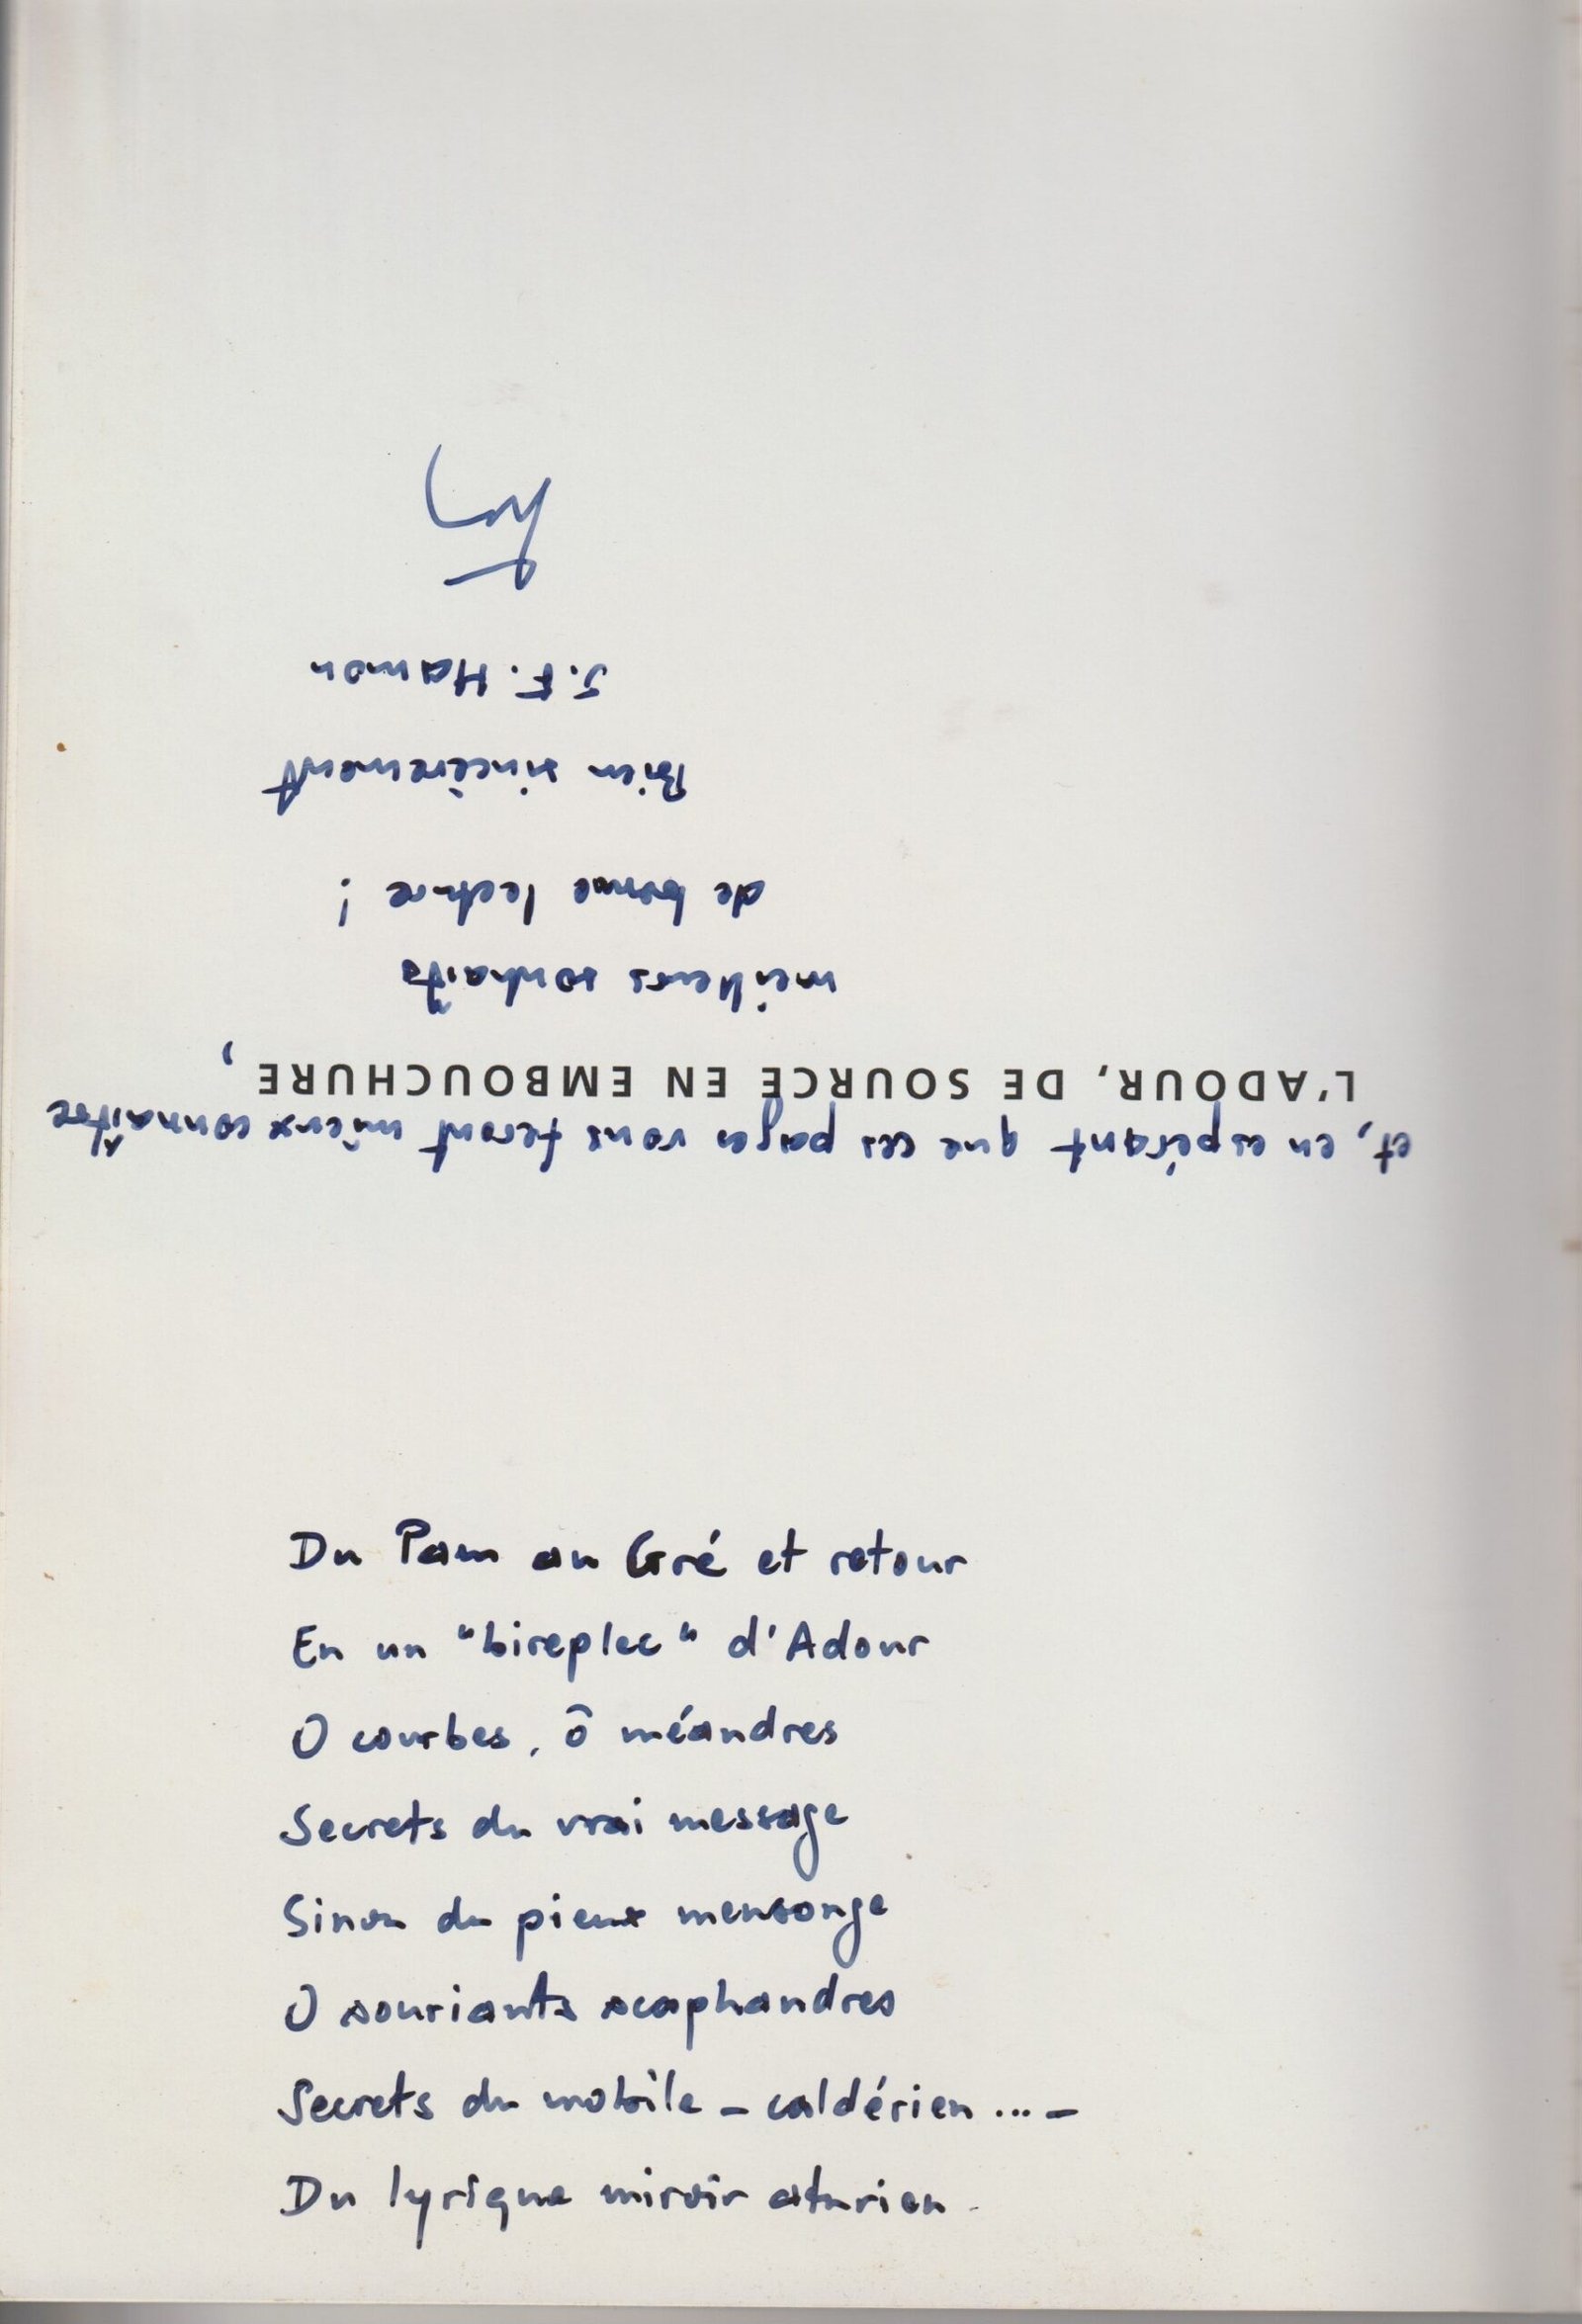 Du Pam au Gré et retour
En un "bireplec" d'Adour
O courbes, ô méandres
Secrets du vrai message
Sinon du pieux mensonge
O souriants scaphandres
Secrets du mobile - caldérien ... -
Du lyrique miroir aturien.
et, en espérant que ces pages vous feront mieux connaître
L'ADOUR, DE SOURCE EN EMBOUCHURE,
meilleurs souhaits
de bonne lecture !
Bien sincèrement
J.F. Hamon